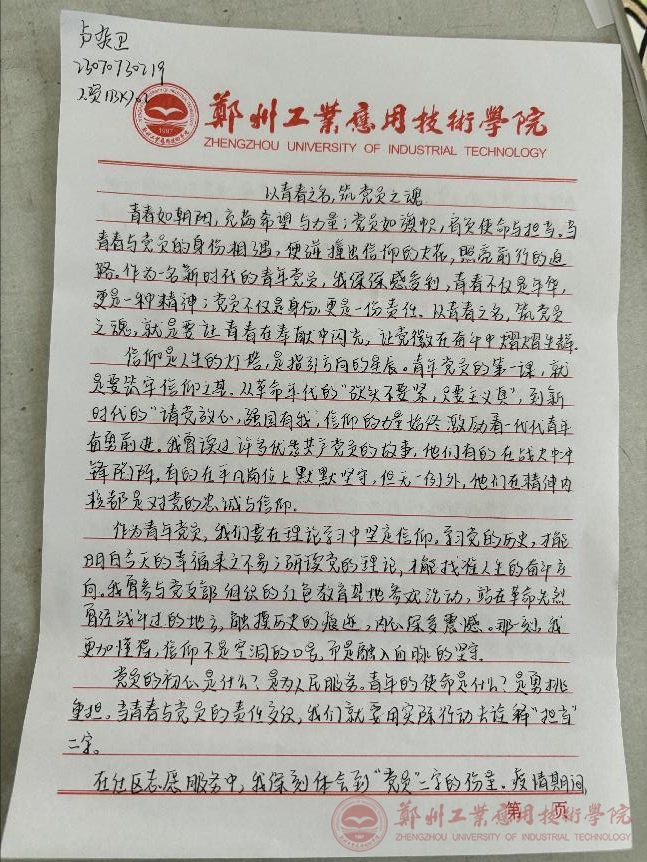 卢
23070730219
鄭州工業應用技術學院
ZHENGZHOU UNIVERSITY OF INDUSTRIAL TECHNOLOGY
1987
以青春之名,筑党员之魂
青春如朝阳,充满希望与力量;党员如旗帜,肩负使命与担当。当
青春与党员的身份相遇,便碰撞出信仰的火花,照亮前行的道
路。作为一名新时代的青年党员,我深深感受到,青春不仅是年华,
更是一种精神;党员不仅是身份,更是一份责任。以青春之名,筑党员
之魂,就是要让青春在奉献中闪光,让党徽在奋斗中熠熠生辉。
信仰是人生的灯塔,是指引方向的星辰。青年党员的第一课,就
是要筑牢信仰之基。从革命年代的“砍头不要紧,只要主义真”,到新
时代的“请党放心,强国有我”,信仰的力量始终激励着一代代青年
奋勇前进。我曾读过许多优秀共产党员的故事,他们有的在战火中冲
锋陷阵,有的在平凡岗位上默默坚守,但无一例外,他们在精神内
核都是对党的忠诚与信仰。
作为青年党员,我们要在理论学习中坚定信仰。学习党的历史,才能
明白今天的幸福来之不易;研读党的理论,才能找准人生的奋斗方
向。我曾参与党支部组织的红色教育基地参观活动,站在革命先烈
曾经战斗过的地方,触摸历史的痕迹,内心深受震撼。那一刻,我
更加懂得,信仰不是空洞的口号,而是融入血脉的坚守。
党员的初心是什么?是为人民服务。青年的使命是什么?是勇挑
重担。当青春与党员的责任交织,我们就要用实际行动去诠释“担当”
二字。
在社区志愿服务中,我深刻体会到“党员”二字的份量。疫情期间,
第 页
鄭州工業應用技術學院
ZHENGZHOU UNIVERSITY OF INDUSTRIAL TECHNOLOGY